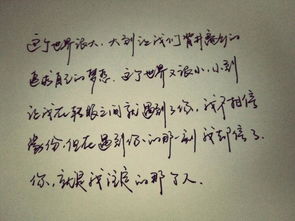 这个世界很大，大到让我们背井离乡的
追求自己的梦想．这个世界又很小，小到
让我在转眼之间就遇到了你，我不相信
缘份，但在遇到你的那一刻我却信了．
你，就是我注定的那个人．